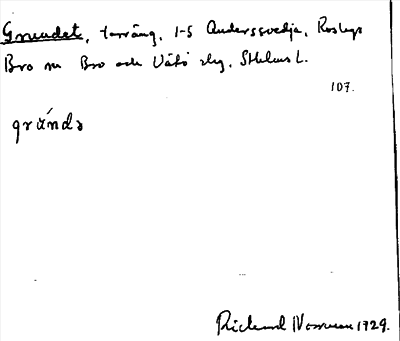 Grundet, terräng, 1-5 Anderssvedja, Roslags
Bro sn Bro och Vätö skg, Sthlms L.
107.
gründə
Rickard Norman 1929.